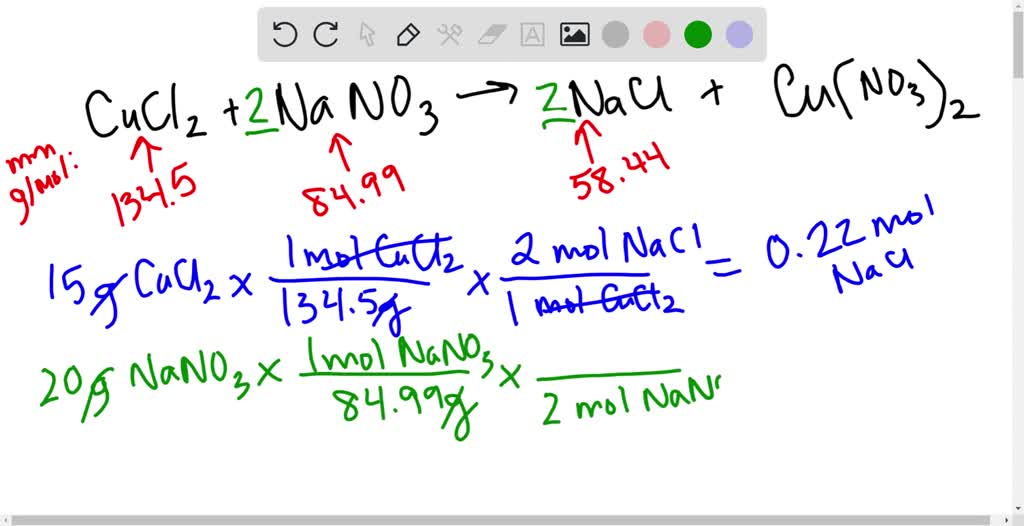 CuCl2 + 2NaNO3 → 2NaCl + Cu(NO3)2
mm g/mol: 134.5 84.99 58.44
15g CuCl2 x 1mol CuCl2 / 134.5g x 2 mol NaCl / 1 mol CuCl2 = 0.22 mol NaCl
20g NaNO3 x 1mol NaNO3 / 84.99g x / 2 mol NaN